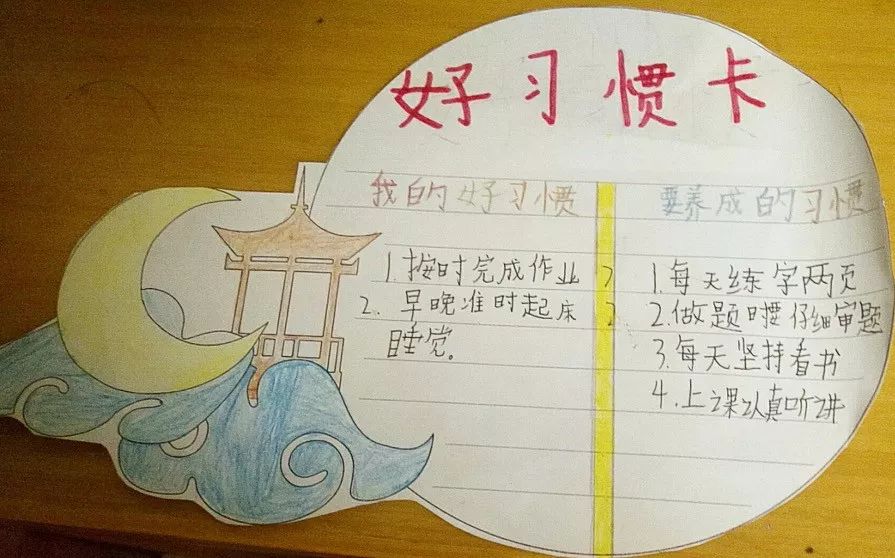 好习惯卡
我的好习惯
1.按时完成作业
2. 早晚准时起床
睡觉。
要养成的习惯
1.每天练字两页
2.做题时要仔细审题
3.每天坚持看书
4.上课认真听讲